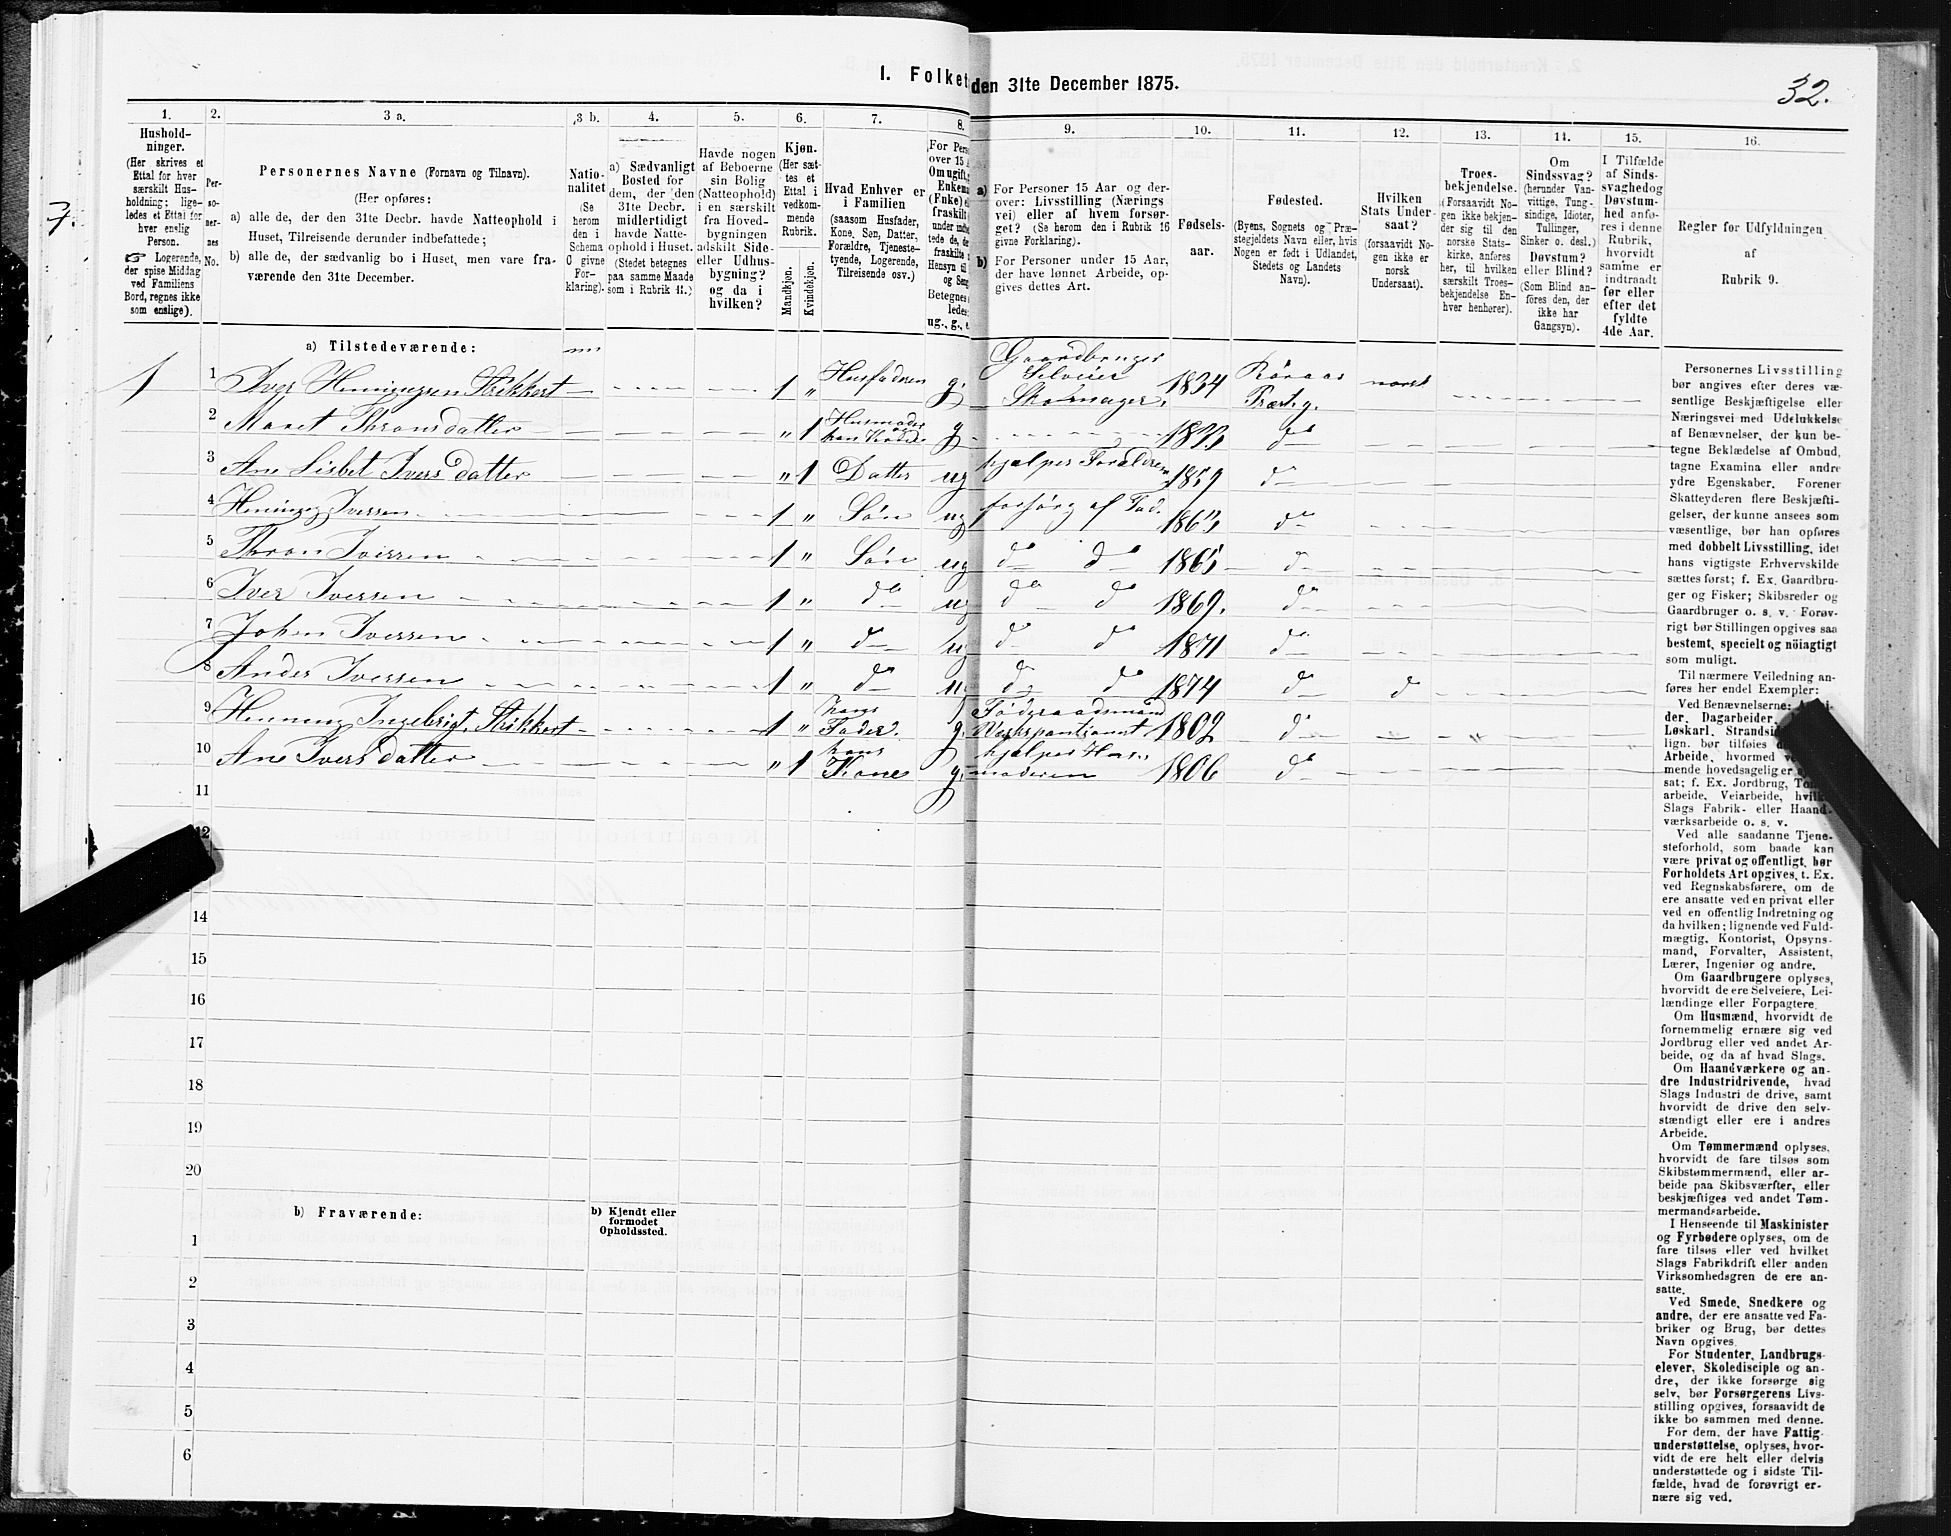 1. Folket
den 31te December 1875.
32.
7.
1.
Hushold-
ninger.
(Her skrives et
Ettal for hver
særskilt Hus-
holdning; lige-
ledes et Ettal for
hver enslig
Person.
☞ Logerende,
der spise Middag
ved Familiens
Bord, regnes ikke
som enslige).
2.
Per-
so-
ner-
nes
No.
3 a.
Personernes Navne (Fornavn og Tilnavn).
(Her opføres:
a) alle de, der den 31te Decbr. havde Natteophold i
Huset, Tilreisende derunder indbefattede;
b) alle de, der sædvanlig bo i Huset, men vare fra-
værende den 31te December.
3 b.
Natio-
nalitet
(Se
herom
den i
Schema
C givne
For-
klaring).
4.
a) Sædvanligt
Bosted for
dem, der den
31te Decbr.
midlertidigt
havde Natte-
ophold i Huset.
(Stedet betegnes
paa samme Maade
som i Rubrik 11.)
5.
Havde nogen
af Beboerne
sin Bolig
(Natteophold)
i en særskilt
fra Hoved-
bygningen
adskilt Side-
eller Udhus-
bygning?
og da i
hvilken?
6.
Kjøn.
(Her sæt-
tes et
Ettal i
vedkom-
mende
Rubrik.
Mandkjøn.
Kvindekjøn.
7.
Hvad Enhver er
i Familien
(saasom Husfader,
Kone, Søn, Datter,
Forældre, Tjeneste-
tyende, Logerende,
Tilreisende osv.)
8.
For Pers
over 15
Om ugift,
Enkema
(Fnke) e
fraskilt
under
tede de, d
fraskilte
Hensyn til
og Seng
Betegnes
ledes:
ug., g., e
9.
a) For Personer 15 Aar og der-
over: Livsstilling (Nærings
vei) eller af hvem forsør-
get? (Se herom den i Rubrik 16
givne Forklaring).
b) For Personer under 15 Aar,
der have lønnet Arbeide, op-
gives dettes Art.
10.
Fødsels-
aar.
11.
Fødested.
(Byens, Sognets og Præ-
stegjeldets Navn eller, hvis
Nogen er født i Udlandet,
Stedets og Landets
Navn).
12.
Hvilken
Stats Under-
saat?
(forsaavidt No-
gen ikke er
norsk
Undersaat).
13.
Troes-
bekjendelse.
(Forsaavidt No-
gen ikke bekjen-
der sig til den
norske Stats-
kirke, anføres
her, til hvilken
særskilt Troes-
bekjendelse En-
hver henhører).
14.
Om
Sindssvag?
(herunder Van-
vittige, Tung-
sindige, Idioter,
Tullinger,
Sinker o. desl.)
Døvstum?
eller Blind?
(Som Blind an-
føres den, der
ikke har
Gangsyn).
15.
I Tilfælde
af Sinds-
svaghedog
Døvstum-
hed anfø-
res i denne
Rubrik,
hvorvidt
samme er
indtraadt
før eller
efter det
fyldte
4de Aar.
16.
Regler for Udfyldningen
af
Rubrik 9.
a) Tilstedeværende:
1 1 Iver Henningsen Rikkert 1 " Husfaderen g. Gaardbruger Selveier Skomager. 1834 Röraas Præstg. norsk
2 Maret Thronsdatter " 1 Husmoder g 1833 do
3 Ane Lisbet Iversdatter " 1 Datter ug hjælper Forældren 1859 do
4 Henning Iversen 1 " Sön ug forsörg af Fad. 1863 do
5 Thron Iversen 1 " Sön ug do do 1865 do
6 Iver Iversen 1 " do ug do do 1869. do
7 John Iversen 1 " do ug do do 1871 do
8 Anders Iversen 1 " do u. do do 1874 do d
9 Henning Ingebrigt. Rikkert 1 " hans Fader. g. Föderaadsmand 1802 do
10 Ane Iversdatter " 1 hans Kone g. hjælper Hus moderen 1806 do
11
12
14
15
16
17
18
19
20
b) Fraværende:
b) Kjendt eller
formodet
Opholdssted.
1
2
3
4
5
6
Personernes Livsstilling
bør angives efter deres væ-
sentlige Beskjæftigelse eller
Næringsvei med Udelukkelse
af Benævnelser, der kun be-
tegne Beklædelse af Ombud,
tagne Examina eller andre
ydre Egenskaber. Forener
Skatteyderen flere Beskjæfti-
gelser, der kunne ansees som
væsentlige, bør han opføres
med dobbelt Livsstilling, idet
hans vigtigste Erhvervskilde
sættes først; f. Ex. Gaardbru-
ger og Fisker; Skibsreder og
Gaardbruger o. s. v. Forøv-
rigt bør Stillingen opgives saa
bestemt, specielt og nöiagtigt
som muligt.
Til nærmere Veiledning an-
føres her endel Exempler:
Ved Benævnelserne:
der, Dagarbeider,
Løskarl, Strandsi
lign. bør tilføies
Arbeide, hvormed
mende hovedsagelig er
sat; f. Ex. Jordbrug, Tom
arbeide, Veiarbeide, hvil
Slags Fabrik- eller Haand-
værksarbeide o. s. v.
Ved alle saadanne Tjene-
steforhold, som baade kan
være privat og offentligt, bør
Forholdets Art opgives, t. Ex.
ved Regnskabsførere, om de
ere ansatte ved en privat eller
ved en offentlig Indretning og
da hvilken; lignende ved Fuld-
mægtig, Kontorist, Opsyns-
mand, Forvalter, Assistent,
Lærer, Ingeniør og andre.
Om Gaardbrugere oplyses,
hvorvidt de ere Selveiere, Lei-
lændinge eller Forpagtere.
Om Husmænd, hvorvidt de
fornemmelig ernære sig ved
Jordbrug eller ved andet Ar-
beide, og da af hvad Slags.
Om Haandværkere og an-
dre Industridrivende, hvad
Slags Industri de drive, samt
hvorvidt de drive den selv-
stændigt eller ere i andres
Arbeide.
Om Tømmermænd oplyses,
hvorvidt de fare tilsøs som
Skibstømmermænd, eller ar-
beide paa Skibsværfter, eller
beskjæftiges ved andet Tøm-
mermandsarbeide.
I Henseende til Maskinister
og Fyrbødere oplyses, om de
fare tilsøs eller ved hvilket
Slags Fabrikdrift eller anden
Virksomhedsgren de ere an-
satte.
Ved Smede, Snedkere og
andre, der ere ansatte ved Fa-
briker og Brug, bør dettes
Navn opgives.
For Studenter, Landbrugs-
elever, Skoledisciple og an-
dre, der ikke forsørge sig
selv, bør Forsørgerens Livs-
stilling opgives, forsaavidt de
ikke bo sammen med denne.
For dem, der have Fattig-
understøttelse, oplyses, hvor-
vidt de ere helt eller delvis
understøttede og i sidste Til-
fælde, hvad de forøvrigt er-
nære sig ved.